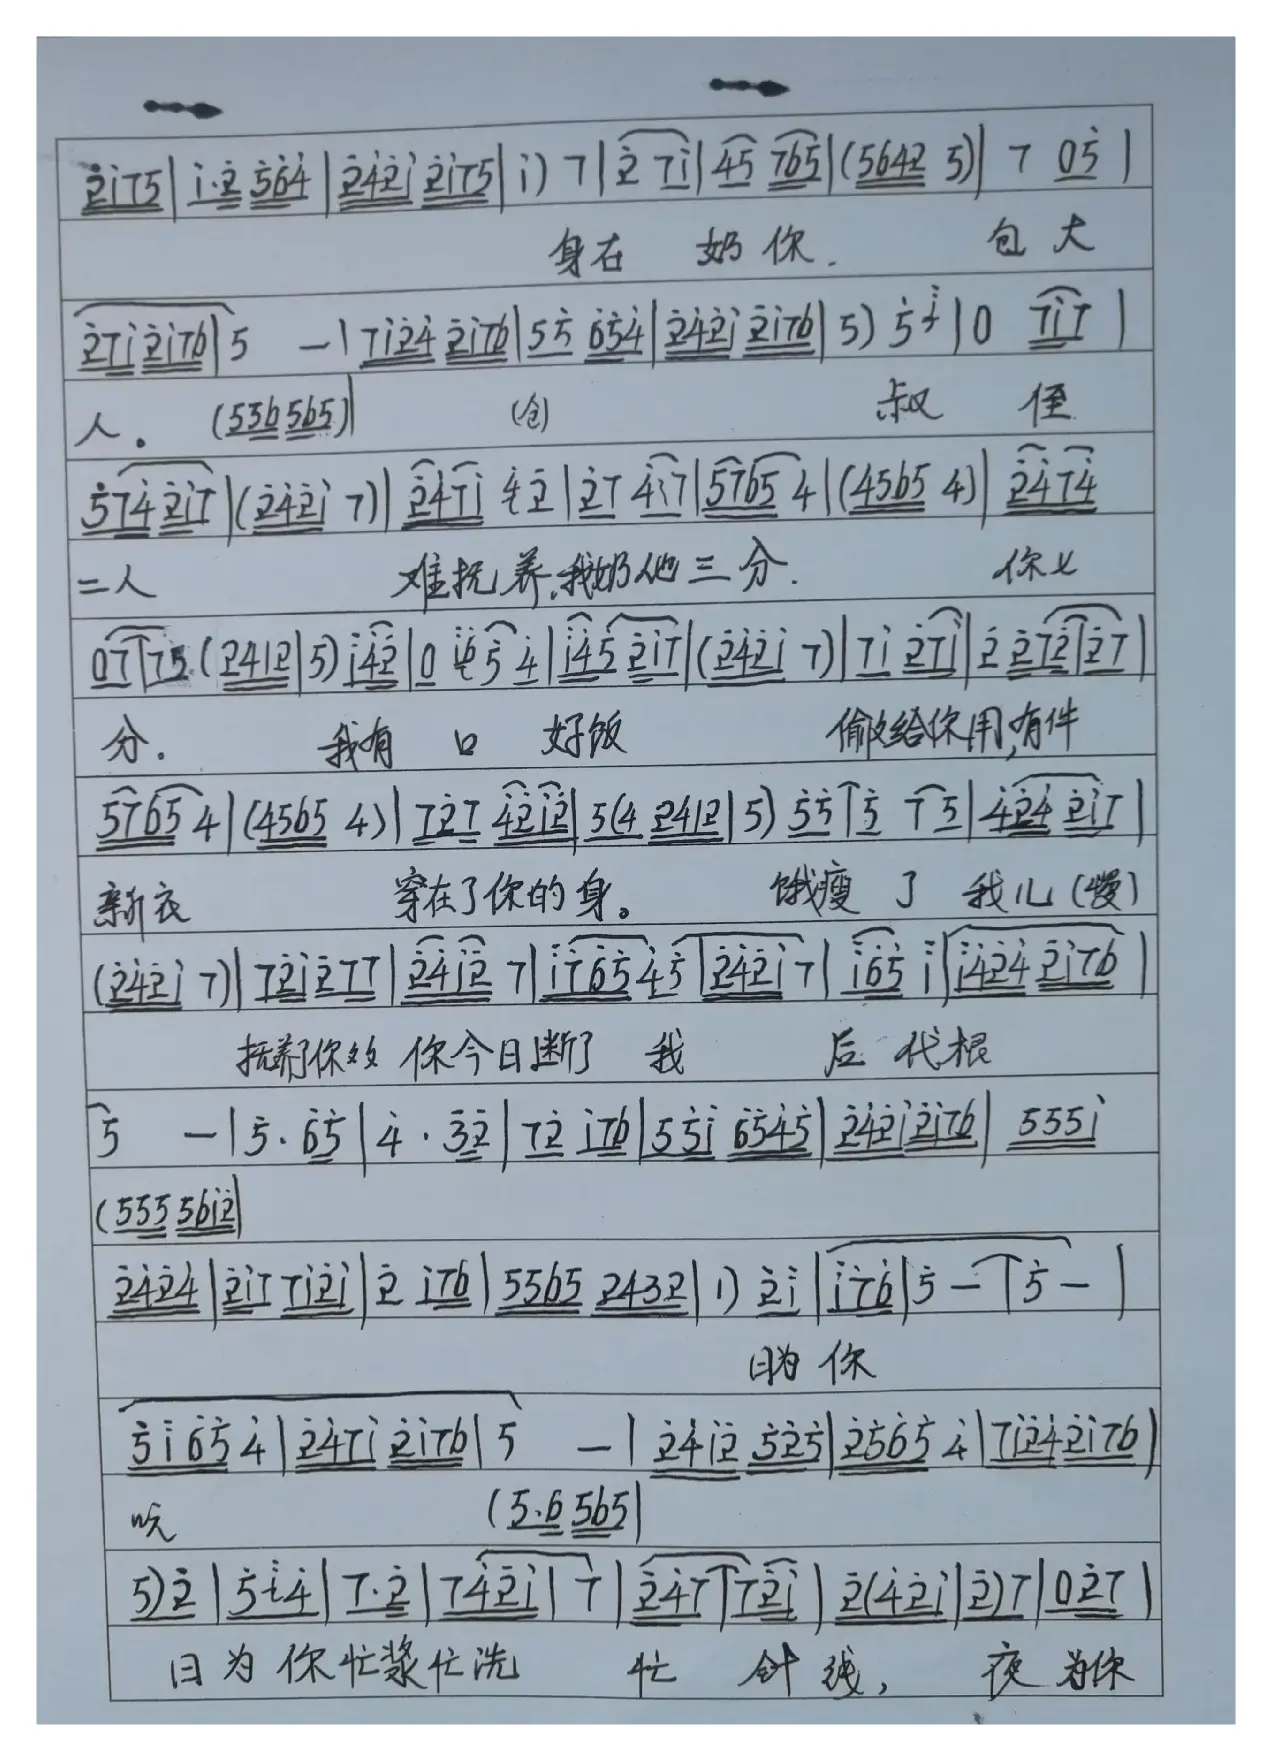 2̇i̇75|i̇·2̇ 5̇6̇4̇|2̇4̇2̇i̇ 2̇i̇75|i̇) 7|2̇ 7i̇|45 765|(5642 5)| 7 05̇|
身在 奶你. 包大
2̇7i̇ 2̇i̇76|5 —|7i̇2̇4̇ 2̇i̇76|55̇ 6̇5̇4̇|2̇4̇2̇i̇ 2̇i̇76|5) 5̇|0 7i̇7|
人。 (536 565)| (仓) 叔 侄
5̇74̇ 2̇i̇7|(2̇4̇2̇i̇ 7)|2̇4̇7i̇ 4̇2̇|2̇7 4̇i̇7|5765 4|(4565 4)|2̇4̇74̇
二人 难抚养,我奶他三分. 你七
07|75(2412|5)i̇4̇2̇|0 5̇ 4̇|i̇4̇5̇ 2̇i̇7|(2̇4̇2̇i̇ 7)|7i̇ 2̇7i̇|2̇ 2̇72̇|2̇7|
分. 我有 口 好饭 偷给你用,有件
5765 4|(4565 4)|72̇7 4̇2̇i̇2̇|5(4 2412|5) 5̇5̇|5̇ 7 5|4̇2̇4̇ 2̇i̇7|
新衣 穿在了你的身。 饿瘦 了 我儿(慢)
(2̇4̇2̇i̇ 7)|72̇i̇ 2̇77|2̇4̇i̇2̇ 7|i̇76̇5̇ 4̇5̇|2̇4̇2̇i̇ 7|i̇6̇5̇ i̇|i̇4̇2̇4̇ 2̇i̇76|
抚养了你 你今日断了 我 后代根
5 —|5̇·6̇5̇|4̇·3̇2̇|72̇ i̇76|55̇i̇ 6̇5̇4̇5̇|2̇4̇2̇i̇ 2̇i̇76|555i̇
(555 56i̇2̇|
2̇4̇2̇4̇|2̇i̇7 7i̇2̇i̇|2̇ i̇76|5565 2432|1) 2̇i̇|i̇76|5̇ —|5̇ —|
日为 你
5̇i̇6̇5̇ 4̇|2̇4̇7i̇ 2̇i̇76|5 —|2̇4̇i̇2̇ 5̇2̇5̇|2̇5̇6̇5̇ 4̇|7i̇2̇4̇ 2̇i̇76|
吭 (5·6 565|
5)2̇|5̇i̇4̇|7·2̇|74̇2̇i̇|7|2̇4̇7|72̇i̇|2̇(4̇2̇i̇|2̇)7|02̇7|
日为你忙浆忙洗 忙 针线, 夜为你